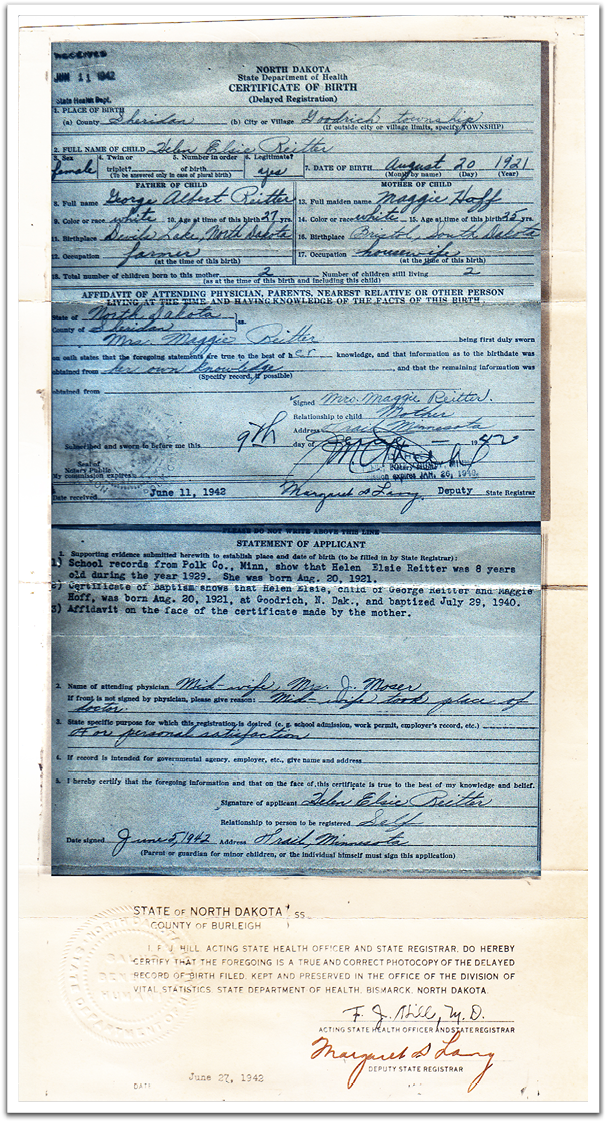 RECEIVED
JUN 11 1942
State Health Dept.
NORTH DAKOTA
State Department of Health
CERTIFICATE OF BIRTH
(Delayed Registration)
1. PLACE OF BIRTH
(a) County Sheridan (b) City or Village Goodrich township
(If outside city or village limits, specify TOWNSHIP)
2. FULL NAME OF CHILD Helen Elsie Reitter
3. Sex female 4. Twin or triplet? 5. Number in order of birth 6. Legitimate? yes 7. DATE OF BIRTH August 20 1921
(To be answered only in case of plural birth) (Month by name) (Day) (Year)
FATHER OF CHILD MOTHER OF CHILD
8. Full name George Albert Reitter 13. Full maiden name Maggie Hoff
9. Color or race white 10. Age at time of this birth 37 yrs. 14. Color or race white 15. Age at time of this birth 35 yrs.
11. Birthplace Devils Lake, North Dakota 16. Birthplace Bristol, South Dakota
12. Occupation farmer 17. Occupation housewife
(at the time of this birth) (at the time of this birth)
18. Total number of children born to this mother 2 Number of children still living 2
(as at the time of this birth and including this child)
AFFIDAVIT OF ATTENDING PHYSICIAN, PARENTS, NEAREST RELATIVE OR OTHER PERSON
LIVING AT THE TIME AND HAVING KNOWLEDGE OF THE FACTS OF THIS BIRTH
State of North Dakota
ss.
County of Sheridan
Mrs. Maggie Reitter being first duly sworn
on oath states that the foregoing statements are true to the best of her knowledge, and that information as to the birthdate was
obtained from her own knowledge, and that the remaining information was
(Specify record, if possible)
obtained from
Signed Mrs. Maggie Reitter.
Relationship to child Mother
Address Minnesota
Subscribed and sworn to before me this 9th day of 1942
Seal of
Notary Public
My commission expires
expires JAN. 26, 1940.
Date received June 11, 1942 Margaret D Lang Deputy State Registrar
PLEASE DO NOT WRITE ABOVE THIS LINE
STATEMENT OF APPLICANT
1. Supporting evidence submitted herewith to establish place and date of birth (to be filled in by State Registrar):
1) School records from Polk Co., Minn, show that Helen Elsie Reitter was 8 years
old during the year 1929. She was born Aug. 20, 1921.
2) Certificate of Baptism shows that Helen Elsie, child of George Reitter and Maggie
Hoff, was born Aug. 20, 1921, at Goodrich, N. Dak., and baptized July 29, 1940.
3) Affidavit on the face of the certificate made by the mother.
2. Name of attending physician Mid-wife, Mrs. J. Moser
If front is not signed by physician, please give reason: Mid-wife took place of
doctor
3. State specific purpose for which this registration is desired (e. g. school admission, work permit, employer's record, etc.)
For personal satisfaction
4. If record is intended for governmental agency, employer, etc., give name and address
5. I hereby certify that the foregoing information and that on the face of this certificate is true to the best of my knowledge and belief.
Signature of applicant Helen Elsie Reitter
Relationship to person to be registered Self
Date signed June 5, 1942 Address Minnesota
(Parent or guardian for minor children, or the individual himself must sign this application)
STATE OF NORTH DAKOTA
SS
COUNTY OF BURLEIGH
I, F. J. HILL, ACTING STATE HEALTH OFFICER AND STATE REGISTRAR, DO HEREBY
CERTIFY THAT THE FOREGOING IS A TRUE AND CORRECT PHOTOCOPY OF THE DELAYED
RECORD OF BIRTH FILED, KEPT AND PRESERVED IN THE OFFICE OF THE DIVISION OF
VITAL STATISTICS, STATE DEPARTMENT OF HEALTH, BISMARCK, NORTH DAKOTA.
F. J. Hill, M.D.
ACTING STATE HEALTH OFFICER AND STATE REGISTRAR
Margaret D Lang
DEPUTY STATE REGISTRAR
DATE June 27, 1942